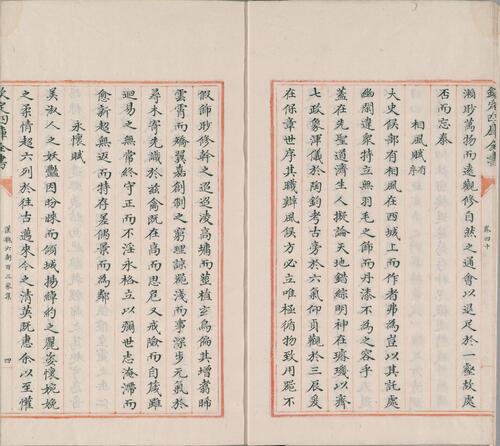 欽定四庫全書
卷四十
瀨眇萬物而遠觀修自然之通會以退足於一壑故處
否而忘泰
相風賦有序
大史候部有相風在西城上而作者弗為豈以其託處
幽閒違衆特立無羽毛之飾而丹漆不為之容乎
蓋在先聖道濟生人擬論天地錯綜明神在璿璣以齊
七政象渾儀於陶鈞考古旁於六氣仰貞觀於三辰爰
在保章世序其職辯風候方必立唯極循物致用雖不
假飾眇修幹之迢迢凌高墉而莖植玄鳥偏其增翥晞
雲霄而矯翼嘉創制之窮理諒淺而事深步元氣於
尋木寄先識於兹禽既在高而思危又戒險而自箴雖
迴易之無常終守正而不淫永恪立以彌世志淹滯而
愈新超無返而特存差偶景而為鄰
永懷賦
美淑人之妖豔因盼睞而傾城揚綽約之麗姿懷婉娩
之柔情超六列於往古邁來今之清英既惠余以至懽
欽定四庫全書
漢魏六朝百三家集
四